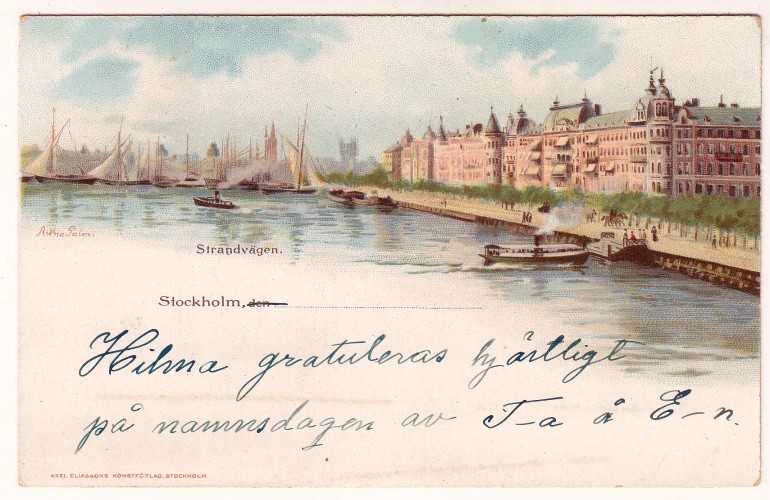 Anna Palm.
Strandvägen.
Stockholm, den
Hilma gratuleras hjärtligt
på namnsdagen av T-a å E-n.
AXEL ELIASSONS KONSTFÖRLAG, STOCKHOLM.